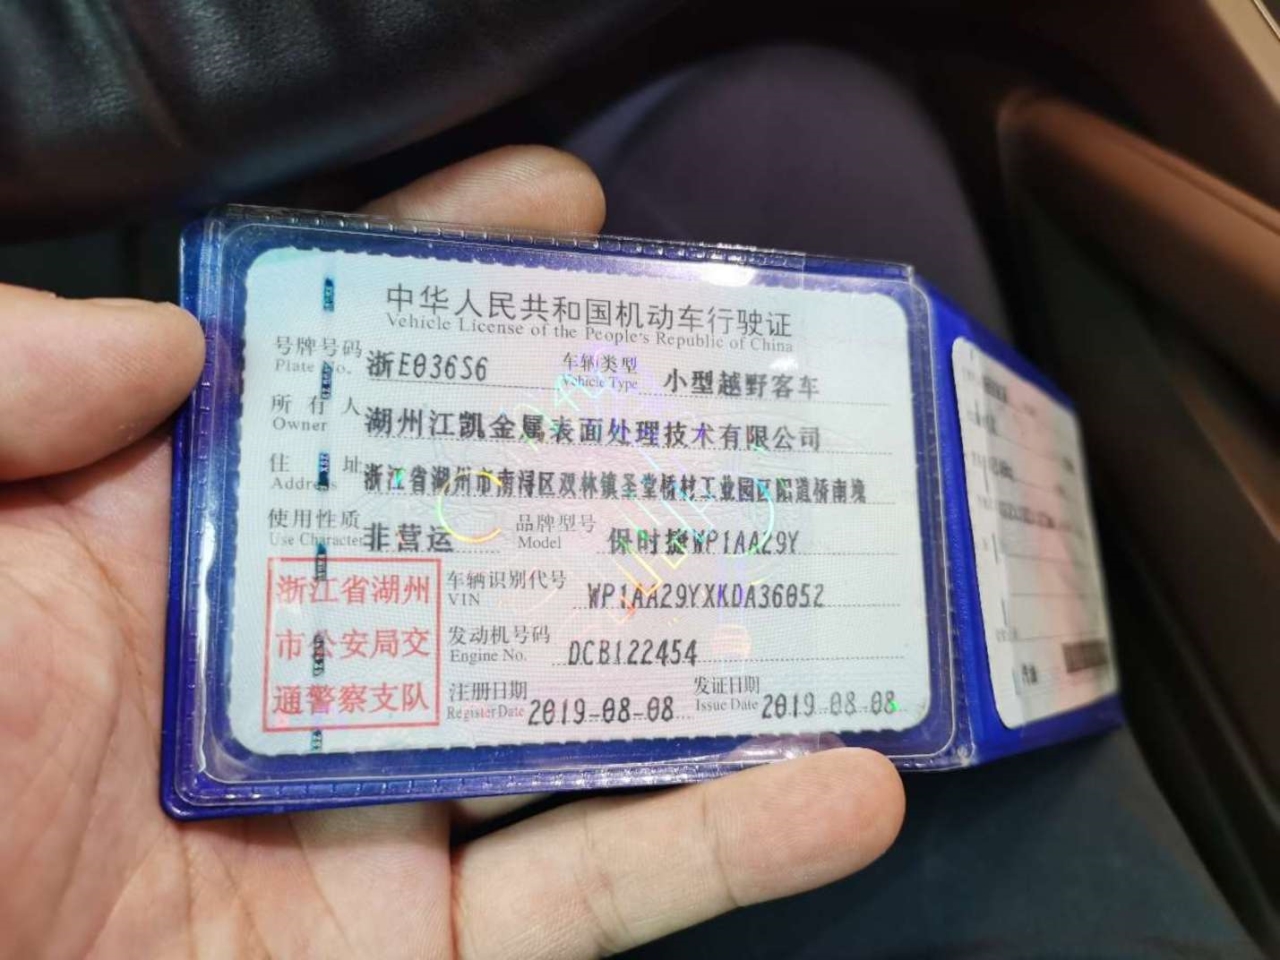 中华人民共和国机动车行驶证
Vehicle License of the People's Republic of China
号牌号码 浙E036S6 车辆类型 小型越野客车
Plate No. Vehicle Type
所有人 湖州江凯金属表面处理技术有限公司
Owner
住址 浙江省湖州市南浔区双林镇圣堂桥材工业园区阳道桥南堍
Address
使用性质 非营运 品牌型号 保时捷WP1AA29Y
Use Character Model
浙江省湖州
市公安局交
通警察支队
车辆识别代号 WP1AA29YXKDA36052
VIN
发动机号码 DCB122454
Engine No.
注册日期 2019-08-08 发证日期 2019-08-08
Register Date Issue Date